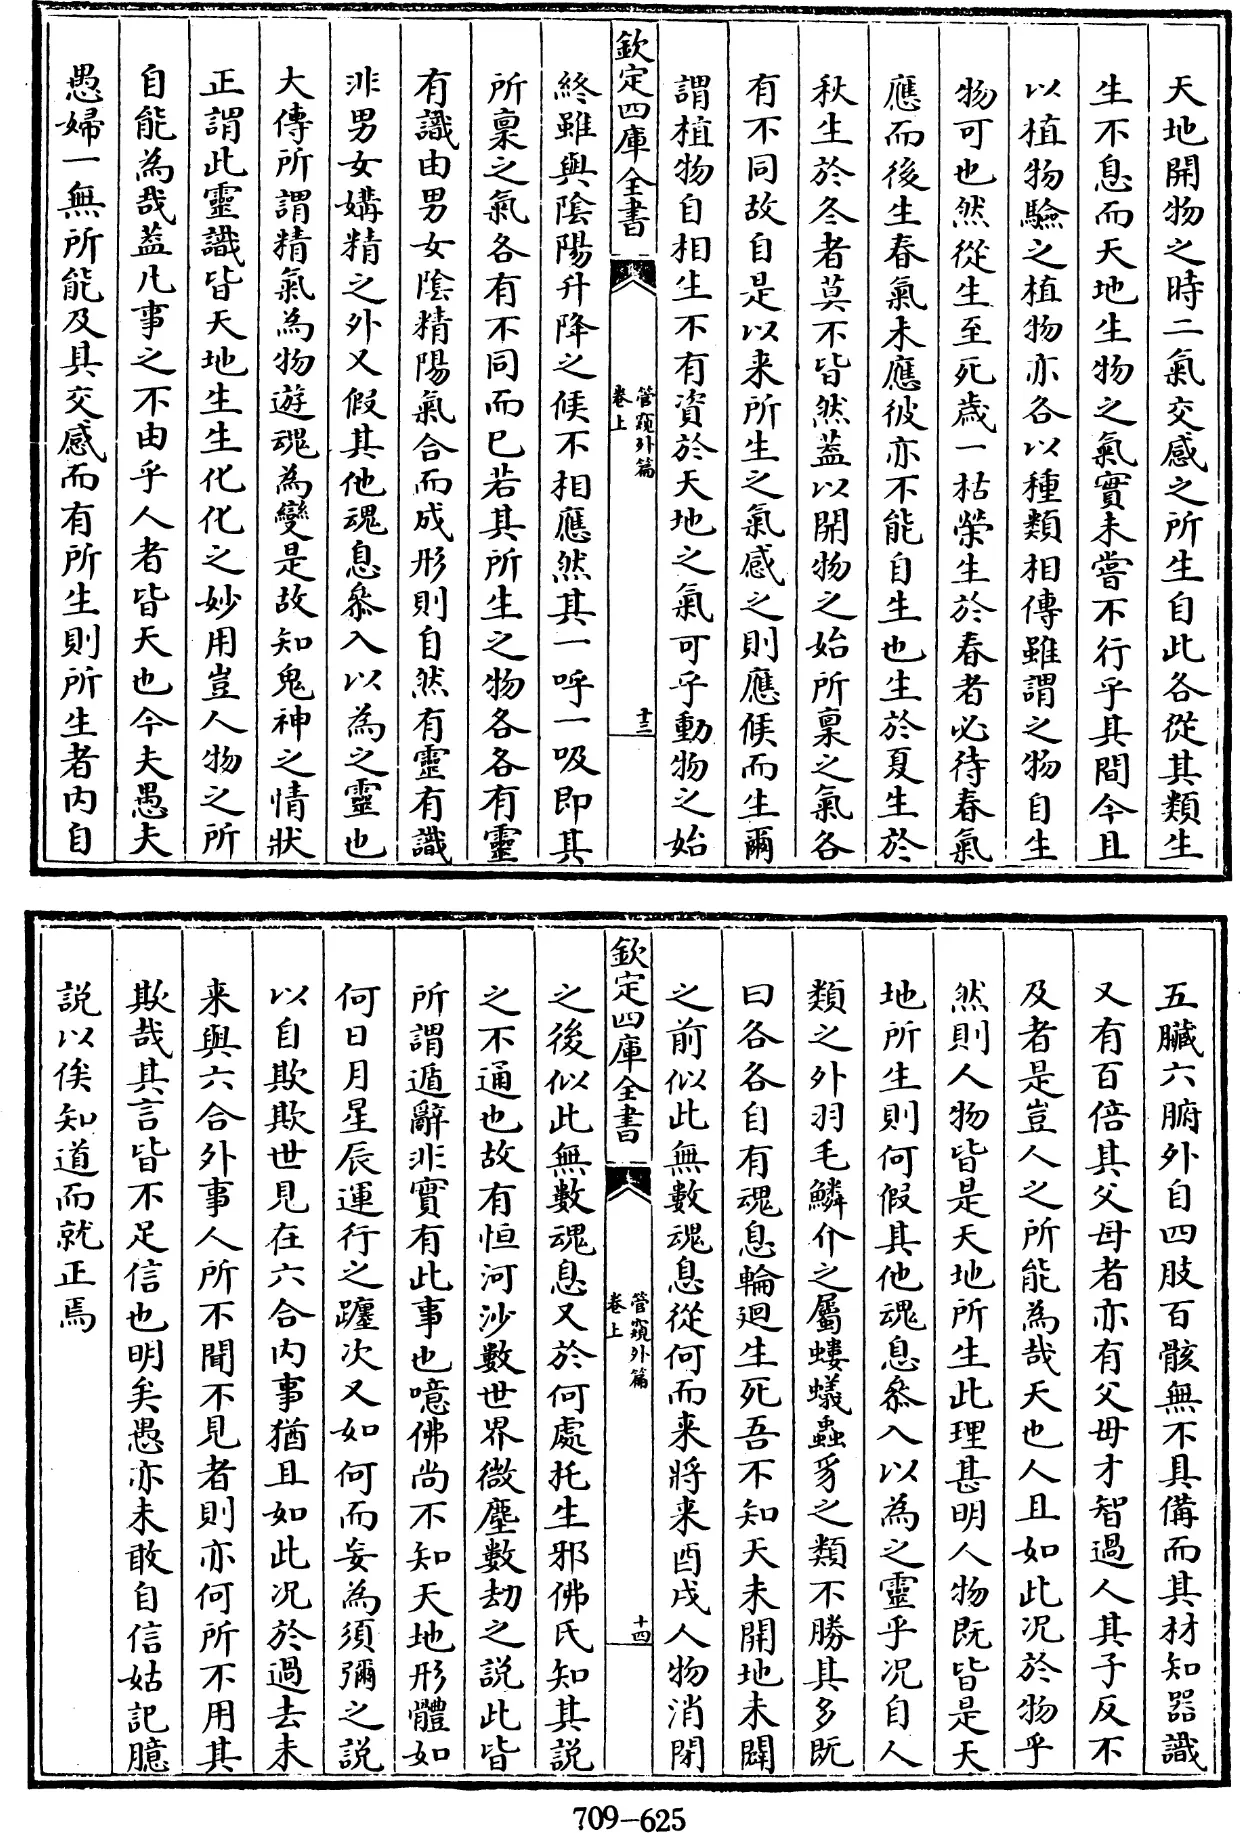 天地開物之時二氣交感之所生自此各從其類生
生不息而天地生物之氣實未嘗不行乎其間今且
以植物驗之植物亦各以種類相傳雖謂之物自生
物可也然從生至死歳一枯榮生於春者必待春氣
應而後生春氣未應彼亦不能自生也生於夏生於
秋生於冬者莫不皆然葢以開物之始所稟之氣各
有不同故自是以来所生之氣感之則應候而生爾
謂植物自相生不有資於天地之氣可乎動物之始
欽定四庫全書
管窺外篇
卷上
十三
終雖與陰陽升降之候不相應然其一呼一吸即其
所稟之氣各有不同而已若其所生之物各各有靈
有識由男女陰精陽氣合而成形則自然有靈有識
非男女媾精之外又假其他魂息叅入以為之靈也
大傳所謂精氣為物遊魂為變是故知鬼神之情狀
正謂此靈識皆天地生生化化之妙用豈人物之所
自能為哉葢凡事之不由乎人者皆天也今夫愚夫
愚婦一無所能及其交感而有所生則所生者内自
五臟六腑外自四肢百骸無不具備而其材知器識
又有百倍其父母者亦有父母才智過人其子反不
及者是豈人之所能為哉天也人且如此况於物乎
然則人物皆是天地所生此理甚明人物既皆是天
地所生則何假其他魂息叅入以為之靈乎况自人
類之外羽毛鱗介之屬螻蟻蟲豸之類不勝其多既
曰各各自有魂息輪廻生死吾不知天未開地未闢
之前似此無數魂息從何而来將来酉戌人物消閉
欽定四庫全書
管窺外篇
卷上
十四
之後似此無數魂息又於何處托生邪佛氏知其説
之不通也故有恒河沙數世界微塵數劫之説此皆
所謂遁辭非實有此事也噫佛尚不知天地形體如
何日月星辰運行之躔次又如何而妄為須彌之説
以自欺欺世見在六合内事猶且如此况於過去未
来與六合外事人所不聞不見者則亦何所不用其
欺哉其言皆不足信也明矣愚亦未敢自信姑記臆
説以俟知道而就正焉
709-625